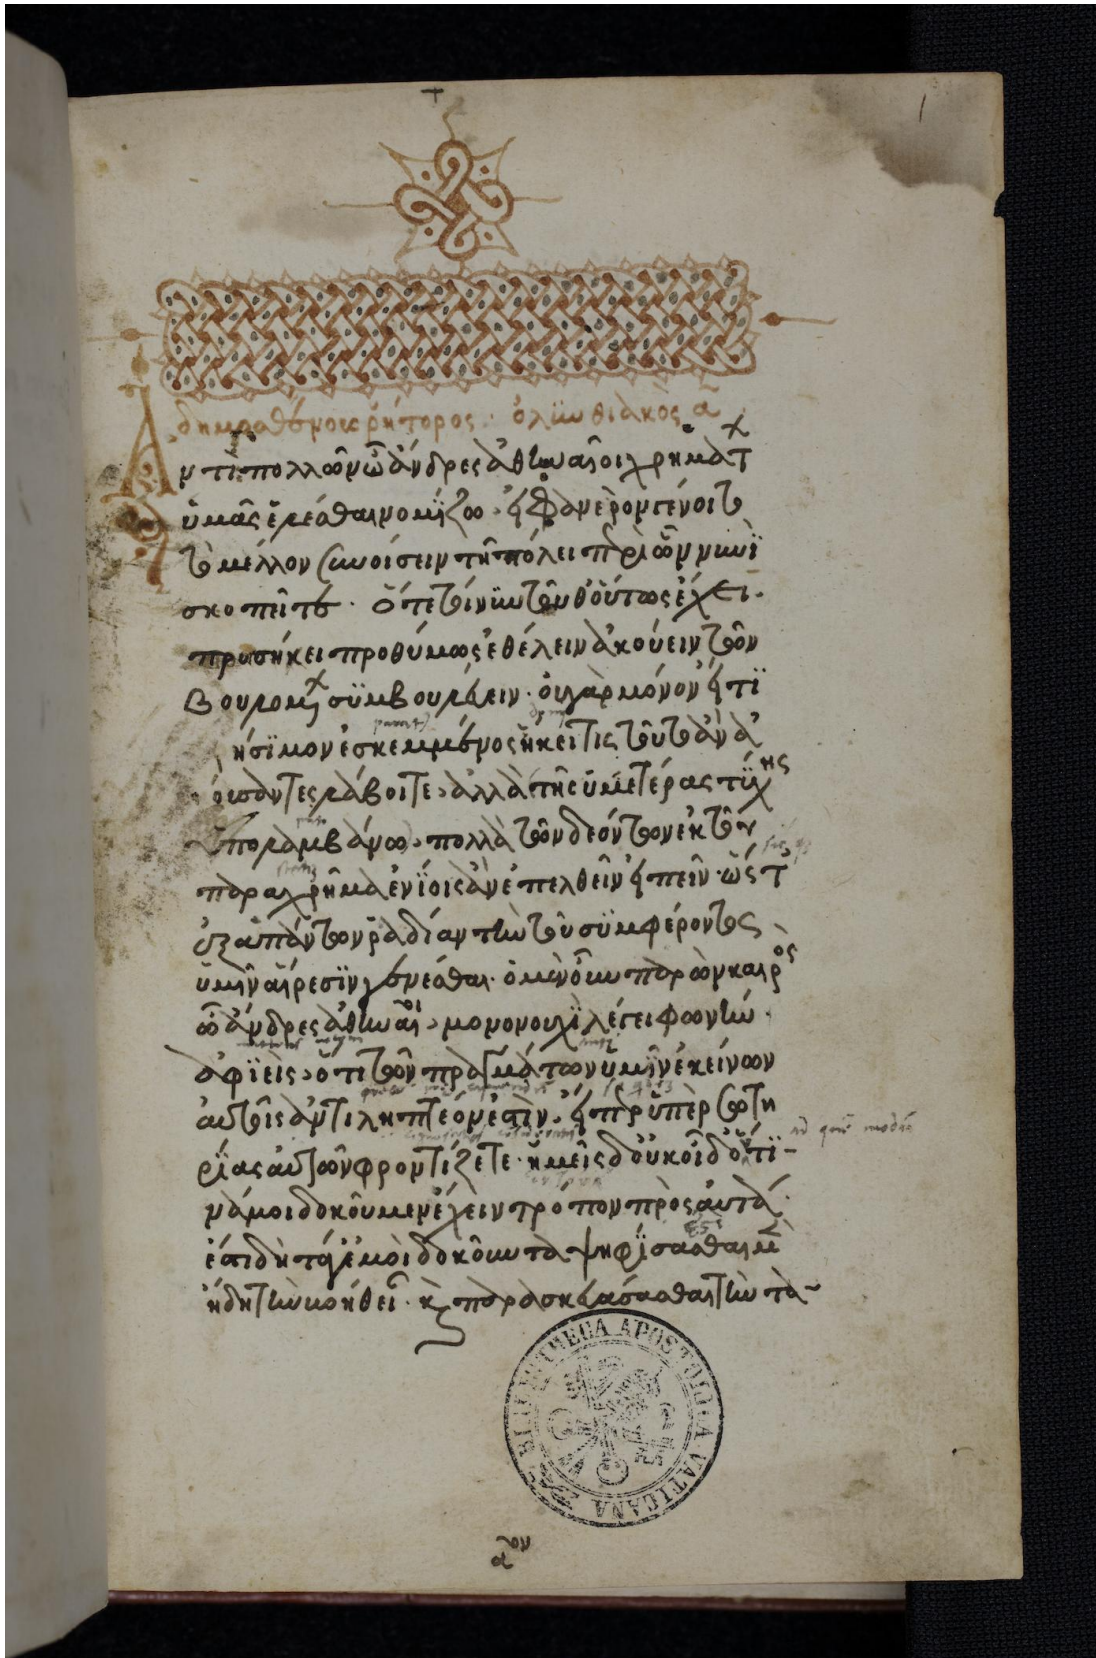 δημοσθένους ῥήτορος · ὀλϋνθιακὸς α
Ἀντὶ πολλῶν ὦ ἄνδρες ἀθηναῖοι χρημάτ
ὑμᾶς ἑλέσθαι νομίζω · εἰ φανερὸν γένοιτο
τὸ μέλλον συνοίσειν τῆ πόλει περὶ ὧν νυνῒ
σκοπεῖτε · ὅτε τοίνυν τοῦθ' οὕτως ἔχει ·
προσήκει προθύμως ἐθέλειν ἀκούειν τῶν
βουλομ συμβουλεύειν · οὐ γὰρ μόνον εἴ τϊ
χρήσϊμον ἐσκεμμένος ἥκει τις τοῦτ' ἂν ἀ
κούσαντες λάβοιτε, ἀλλὰ τῆς ὑμετέρας τύχης
ὑπολαμβάνω, πολλὰ τῶν δεόντων ἐκ τοῦ
παραχρῆμα ἐνΐοις ἂν ἐπελθεῖν εἰπεῖν · ὥστ
ἐξ ἁπάντων ῥαδίαν τὴν τοῦ συμφέροντος
ὑμῖν αἵρεσϊν γενέσθαι · ὁ μὲν οὖν παρὼν καιρὸς
ὦ ἄνδρες ἀθηναῖοι, μονονουχῒ λέγει φωνὴν
ἀφϊεὶς, ὅτι τῶν πραγμάτων ὑμῖν ἐκείνων
αὐτοῖς ἀντιληπτέον ἐστὶν, εἴπερ ὑπὲρ σωτη
ρΐας αὐτῶν φροντίζετε · ἡμεῖς δ οὐκ οἶδ ὅντϊ-
νά μοι δοκοῦμεν ἔχειν τρόπον πρὸς αὐτά ·
ἔστι δὴ τά γ' ἐμοὶ δοκοῦντα ψηφΐσασθαι μὲν
ἤδη τὴν βοήθειαν · κὶ παρασκευάσασθαι τὴν τα-
BIBLIOTHECA APOSTOLICA VATICANA
αον